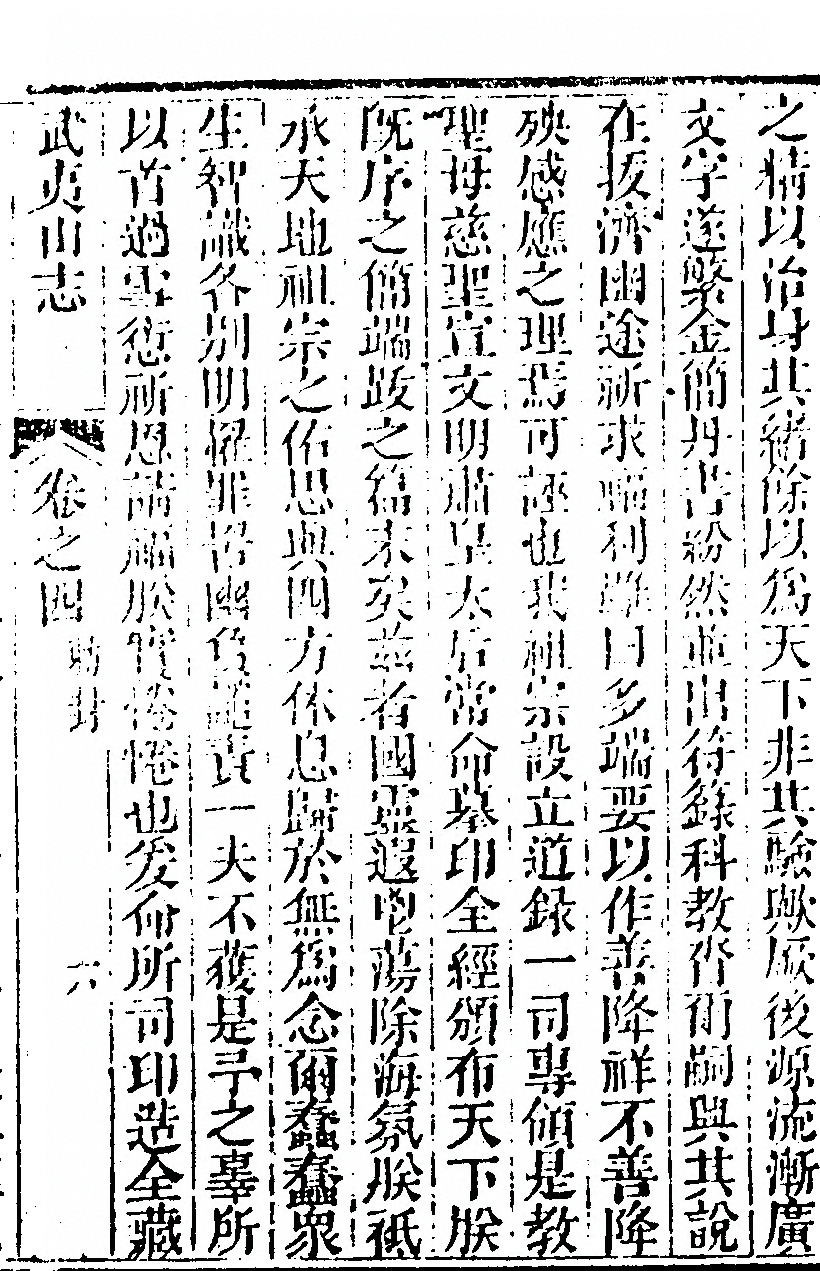 之精以治身其緒餘以為天下非其驗歟厥後源流漸廣
文字遂繁金簡丹書紛然並出符籙科教眘術嗣興其說
在拔濟幽途祈求福利雖曰多端要以作善降祥不善降
殃感應之理焉可誣也我祖宗設立道録一司專領是教
聖母慈聖宣文明肅皇太后常命摹印全經頒布天下朕
既序之簡端跋之篇末矣茲者國靈遐鬯蕩除海氛朕祗
承天地祖宗之佑思與四方休息歸於無為念爾蠢蠢衆
生智識各别明罹罪咎幽負譴責一夫不獲是予之辜所
以首過雪愆祈恩請福朕實惓惓也爰命所司印造全藏
武夷山志
卷之四
勅封
六